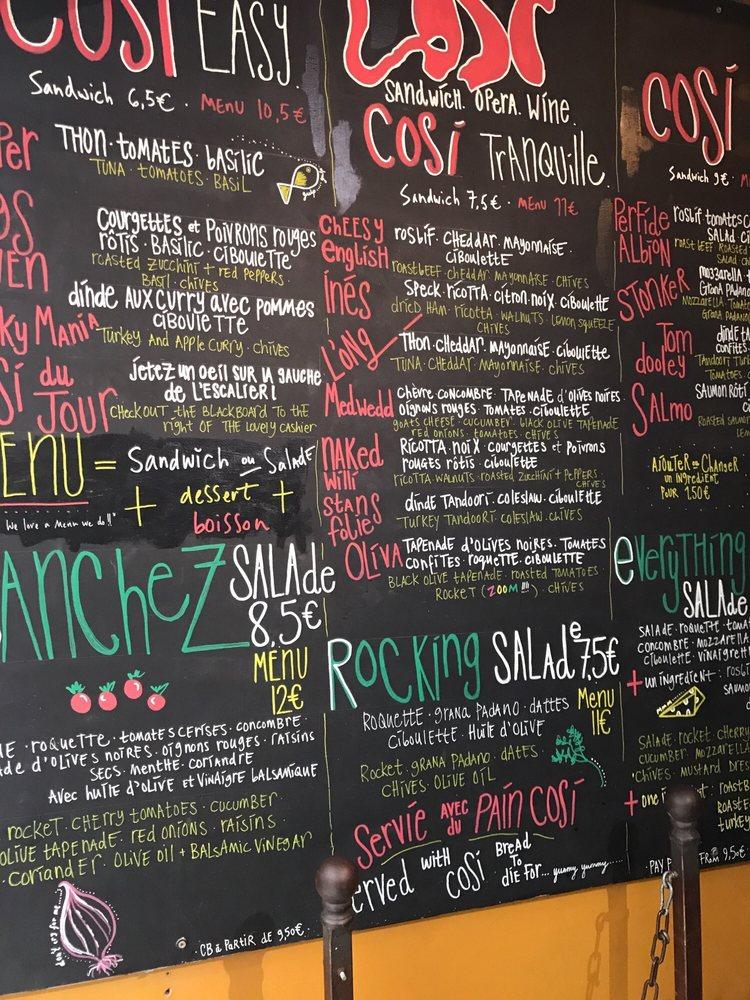 COSÍ EASY
Sandwich 6,5€ · MENU 10,5€
THON · TOMATES · BASILIC
TUNA · TOMATOES · BASIL
gulp
COURGETTES et POIVRONS ROUGES
RÔTIS · BASILIC · CIBOULETTE
ROASTED ZUCCHINI + RED PEPPERS ·
BASIL · CHIVES
DINDE AUX CURRY AVEC POMMES
CIBOULETTE
TURKEY AND APPLE CURRY · CHIVES
MANIA
JETEZ UN OEIL SUR LA GAUCHE
DE L'ESCALIER!
du
JOUR
CHECKOUT THE BLACKBOARD TO THE
RIGHT OF THE LOVELY CASHIER
ENU = Sandwich ou Salade
+ dessert +
boisson
"We love a Menu we do!!"
ANCHEZ SALADE
8,5€
MENU
12€
· ROQUETTE · TOMATES CERISES · CONCOMBRE ·
ADE D'OLIVES NOIRES · OIGNONS ROUGES · RAISINS
SECS · MENTHE · CORIANDRE
AVEC HUILE D'OLIVE ET VINAIGRE BALSAMIQUE
ROCKET · CHERRY TOMATOES · CUCUMBER ·
OLIVE TAPENADE · RED ONIONS · RAISINS ·
CORIANDER · OLIVE OIL + BALSAMIC VINEGAR
CB à PARTIR DE 9,50€ ·
COSI
SANDWICH. OPERA. WINE.
COSÍ TRANQUILLE
Sandwich 7,5€ · MENU 11€
CHEESY
ENGLISH
ROSBIF · CHEDDAR · MAYONNAISE ·
CIBOULETTE
ROASTBEEF · CHEDDAR · MAYONNAISE · CHIVES
INÉS
SPECK · RICOTTA · CITRON · NOIX · CIBOULETTE
DRIED HAM · RICOTTA · WALNUTS · LEMON SQUEEZE
CHIVES
L'ONG
THON · CHEDDAR · MAYONNAISE · CIBOULETTE
TUNA · CHEDDAR · MAYONNAISE · CHIVES
MEDWEDD
CHÈVRE CONCOMBRE · TAPENADE D'OLIVES NOIRES
OIGNONS ROUGES · TOMATES · CIBOULETTE
GOATS CHEESE · CUCUMBER · BLACK OLIVE TAPENADE
RED ONIONS · TOMATOES · CHIVES
NAKED
WILLI
RICOTTA · NOIX · COURGETTES et POIVRONS
ROUGES RÔTIS · CIBOULETTE
RICOTTA · WALNUTS · ROASTED ZUCCHINI + PEPPERS ·
CHIVES
STANS
FOLIES
DINDE TANDOORI · COLESLAW · CIBOULETTE
TURKEY TANDOORI · COLESLAW · CHIVES
OLIVA
TAPENADE D'OLIVES NOIRES · TOMATES
CONFITES · ROQUETTE · CIBOULETTE
BLACK OLIVE TAPENADE · ROASTED TOMATOES ·
ROCKET (ZOOM !!!) · CHIVES
ROCKING SALADE 7,5€
Menu
11€
ROQUETTE · GRANA PADANO · DATTES
CIBOULETTE · HUILE D'OLIVE
ROCKET · GRANA PADANO · DATES ·
CHIVES · OLIVE OIL
SERVIE AVEC DU PAIN COSÍ
erved WITH COSÍ BREAD TO DIE FOR... yummy yummy....
COSÍ
Sandwich 9€ · M
PERFIDE
ALBION
ROSBIF TOMATES
SALAD
ROAST BEEF
STONKER
MOZZARELLA
GRANA PADANO
MOZZARELLA
GRANA PADANO
TOM
DOOLEY
CONFITES
TANDOORI
TOMATOES
SALMO
SAUMON RÔTI
ROASTED
AJOUTER ou CHANGER
un INGREDIENT
POUR 1.50€
EVERYTHING
SALADE
SALADE · ROQUETTE ·
CONCOMBRE · MOZZARELLA
CIBOULETTE · VINAIGRETTE
+ un INGREDIENT :
SAUMON
SALADE · ROCKET · CHERRY
CUCUMBER · MOZZARELLA
CHIVES · MUSTARD
+ one
turkey
FROM 9,50€